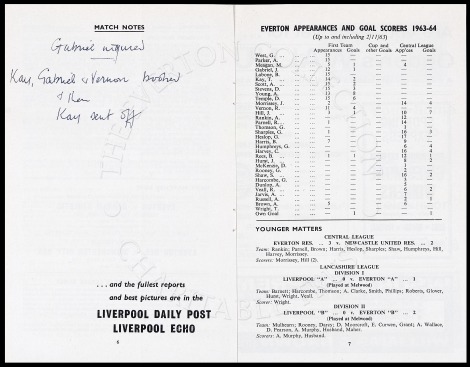 MATCH NOTES
Gabriel injured
Kay, Gabriel & Vernon booked
& then
Kay sent off
. . . and the fullest reports
and best pictures are in the
LIVERPOOL DAILY POST
LIVERPOOL ECHO
6
EVERTON APPEARANCES AND GOAL SCORERS 1963-64
(Up to and including 2/11/63)
First Team Cup and Central League
Appearances Goals other Goals App'ces Goals
West, G. ... 15
Parker, A. ... 15
Meagan, M. ... 5 1 4
Gabriel, J. ... 12
Labone, B. ... 15
Kay, T. ... 14
Scott, A. ... 15
Stevens, D. ... 15
Young, A. ... 13
Temple, D. ... 15
Morrissey, J. ... 2 14 4
Vernon, R. ... 11 4
Hill, J. ... 3 10 7
Rankin, A. ... 12
Parnell, R. ... 1 14
Thomson, G. ... 1
Sharples, G. ... 1 16 3
Heslop, G. ... 17
Harris, B. ... 7 8
Humphreys, G. ... 6 4
Harvey, C. ... 16 4
Rees, B. ... 1 1 12 1
Hurst, J. ... 8 2
McKenzie, D. ... 1
Rooney, G. ... 2
Shaw, S. ... 16 2
Harcombe, G. ... 5
Dunlop, A. ... 5
Veall, R. ... 6 2
Russell, A. ... 2 1
Brown, A. ... 5 6
Wright, T. ...
Own Goal ... 1 1
YOUNGER MATTERS
CENTRAL LEAGUE
EVERTON RES. ... 3 v. NEWCASTLE UNITED RES. ... 2
Team: Rankin; Parnell, Brown; Harris, Heslop, Sharples; Shaw, Humphreys, Hill,
Harvey, Morrissey.
Scorers: Morrissey, Hill (2).
LANCASHIRE LEAGUE
DIVISION I
LIVERPOOL "A" ... 0 v. EVERTON "A" ... 1
(Played at Melwood)
Team: Barnett; Harcombe, Thomson; A. Clarke, Smith, Phillips; Roberts, Glover,
Hurst, Wright, Veall.
Scorer: Wright.
DIVISION II
LIVERPOOL "B" ... 0 v. EVERTON "B" ... 2
(Played at Melwood)
Team: Mulhearn; Rooney, Darcy; D. Moorcroft, E. Curwen, Grant; A. Wallace,
D. Pearson, A. Murphy, Husband, Maher.
Scorers: A. Murphy, Husband.
7